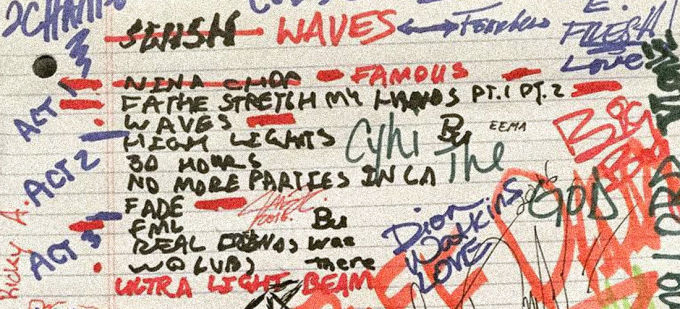 2CHAINZ
SWISH WAVES
E.
FRESH!
Love
ACT 1
NINA CHOP FAMOUS
FATHE STRETCH MY HANDS PT.1 PT.2
WAVES
HIGH LIGHTS
Cyhi
By
EEMA
THE
GOD
BIG
ACT 2
30 HOURS
NO MORE PARTIES IN LA
FADE
2016
FML
By
ACT 3
REAL
was
there
Dion
Watkins
LOVE
Ricky A.
ULTRA LIGHT BEAM